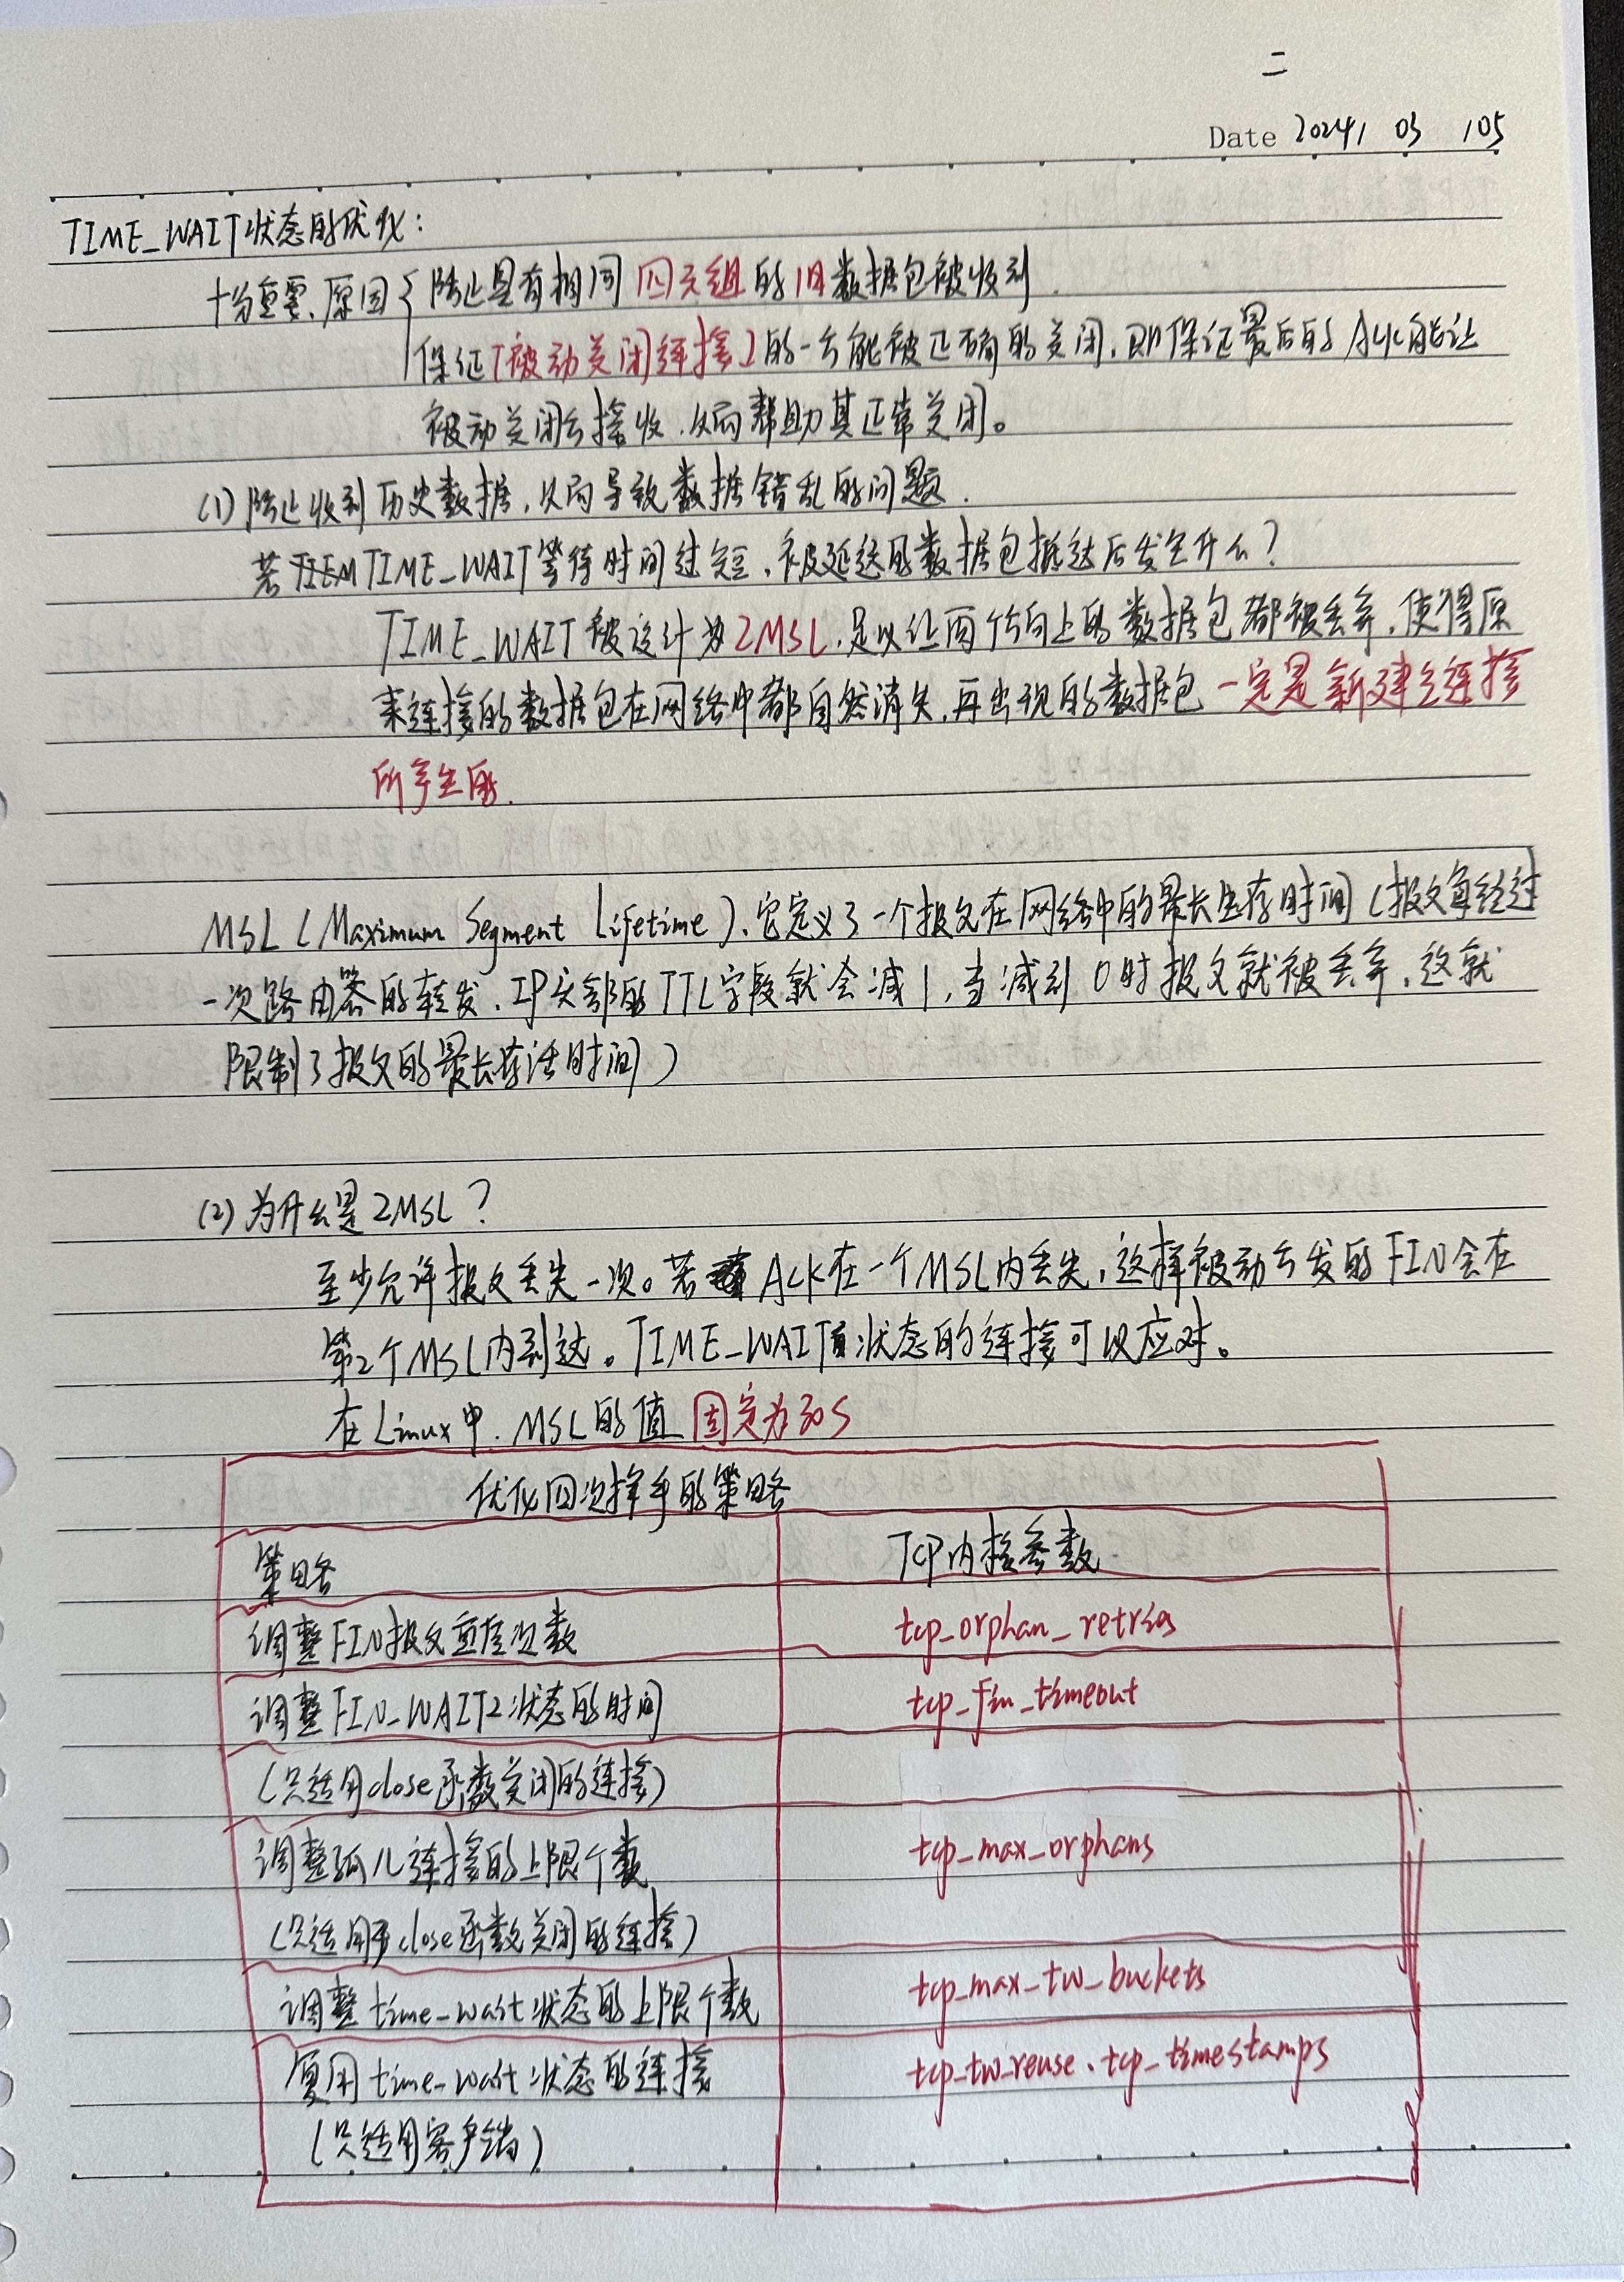 二
Date 2024 / 03 / 05
TIME_WAIT状态的优化：
十分重要.原因{防止具有相同四元组的旧数据包被收到.
保证「被动关闭连接」的一方能被正确的关闭.即保证最后的ACK能让
被动关闭方接收.从而帮助其正常关闭。
(1)防止收到历史数据,从而导致数据错乱的问题.
若TIME_WAIT等待时间过短,被延迟的数据包抵达后发生什么？
TIME_WAIT被设计为2MSL.足以让两个方向上的数据包都被丢弃.使得原
来连接的数据包在网络中都自然消失.再出现的数据包一定是新建立连接
所产生的.
MSL(Maximum Segment Lifetime).它定义了一个报文在网络中的最长生存时间(报文每经过
一次路由器的转发.IP头部的TTL字段就会减1,当减到0时报文就被丢弃.这就
限制了报文的最长存活时间)
(2)为什么是2MSL？
至少允许报文丢失一次。若ACK在一个MSL内丢失,这样被动方发的FIN会在
第2个MSL内到达。TIME_WAIT状态的连接可以应对。
在Linux中.MSL的值固定为30s
优化四次挥手的策略
策略 TCP内核参数
调整FIN报文重传次数 tcp_orphan_retries
调整FIN_WAIT2状态的时间 tcp_fin_timeout
(只适用close函数关闭的连接)
调整孤儿连接的上限个数 tcp_max_orphans
(只适用于close函数关闭的连接)
调整time_wait状态的上限个数 tcp_max_tw_buckets
复用time_wait状态的连接 tcp_tw_reuse、tcp_timestamps
(只适用客户端)